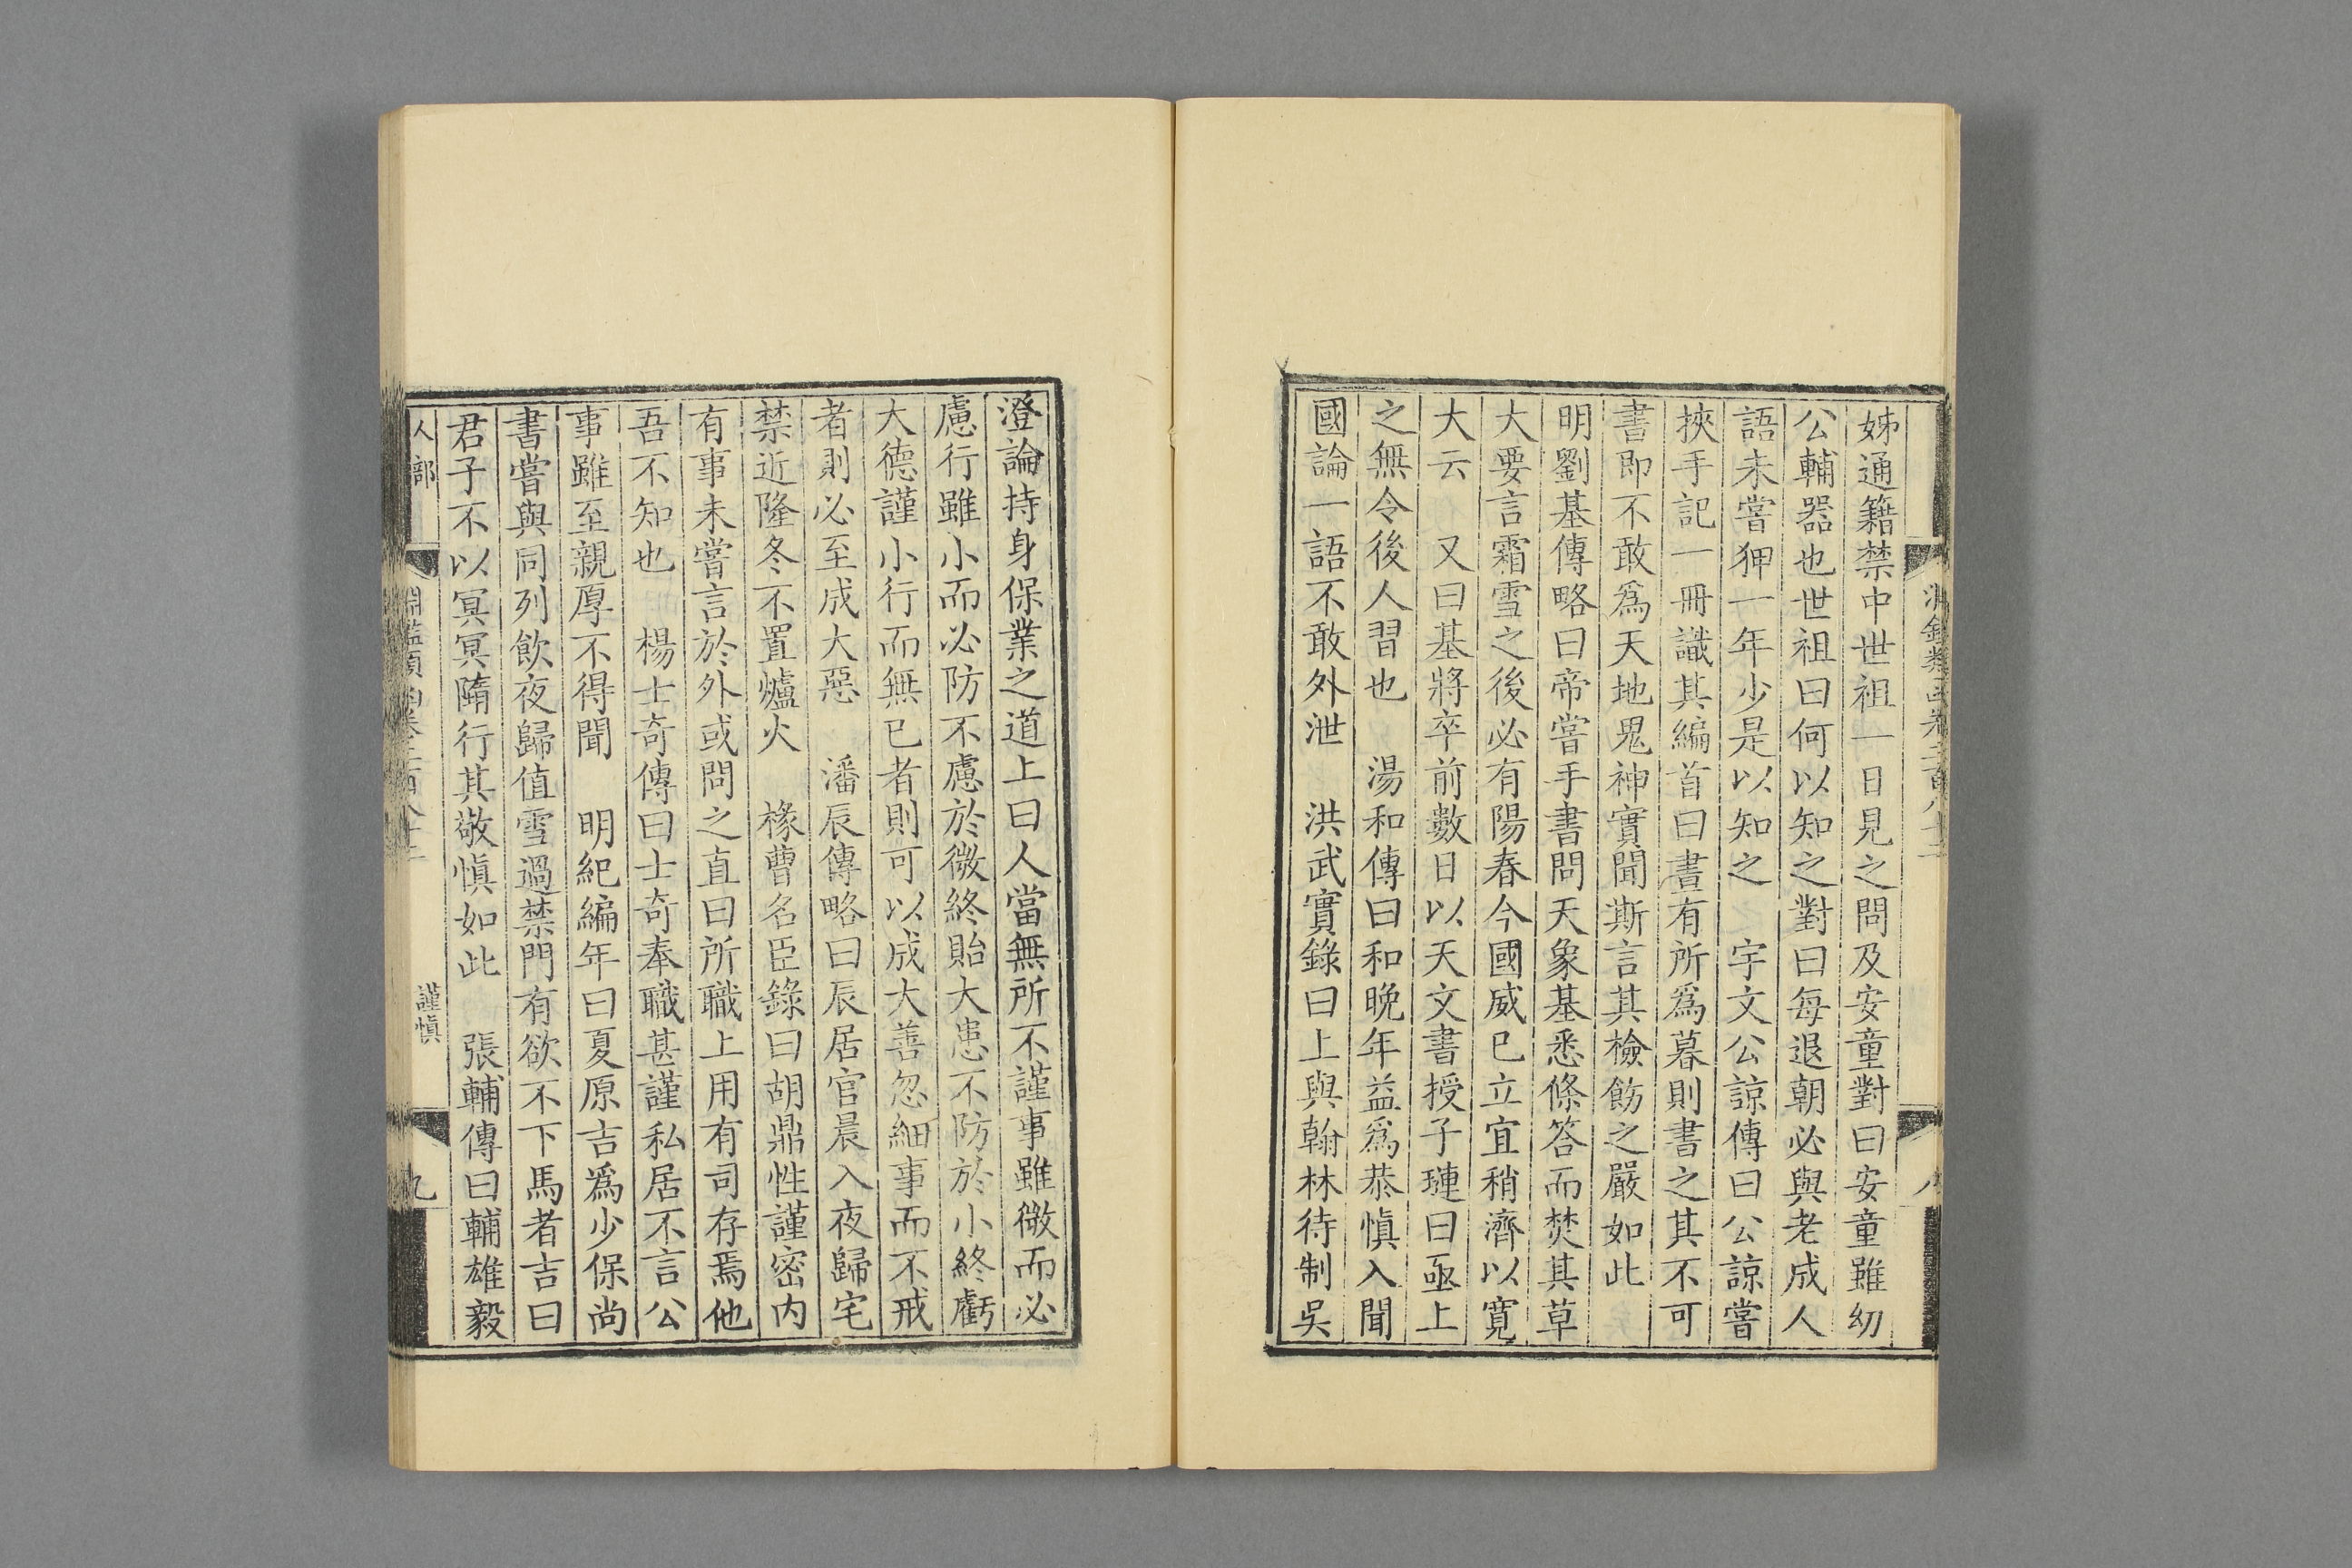 姊通籍禁中世祖一日見之問及安童對曰安童雖幼
公輔器也世祖曰何以知之對曰每退朝必與老成人
語未嘗狎一年少是以知之　宇文公諒傳曰公諒嘗
挾手記一冊識其編首曰晝有所爲暮則書之其不可
書即不敢爲天地鬼神實聞斯言其檢飭之嚴如此
明劉基傳略曰帝嘗手書問天象基悉條答而焚其草
大要言霜雪之後必有陽春今國威已立宜稍濟以寬
大云　又曰基將卒前數日以天文書授子璉曰亟上
之無令後人習也　湯和傳曰和晚年益爲恭愼入聞
國論一語不敢外泄　洪武實錄曰上與翰林待制吳
澄論持身保業之道上曰人當無所不謹事雖微而必
慮行雖小而必防不慮於微終貽大患不防於小終虧
大德謹小行而無已者則可以成大善忽細事而不戒
者則必至成大惡　潘辰傳略曰辰居官晨入夜歸宅
禁近隆冬不置爐火　椽曹名臣錄曰胡鼎性謹密內
有事未嘗言於外或問之直曰所職上用有司存焉他
吾不知也　楊士奇傳曰士奇奉職甚謹私居不言公
事雖至親厚不得聞　明紀編年曰夏原吉爲少保尚
書嘗與同列飲夜歸值雪過禁門有欲不下馬者吉曰
君子不以冥冥隋行其敬愼如此　張輔傳曰輔雄毅
人部
謹愼
九